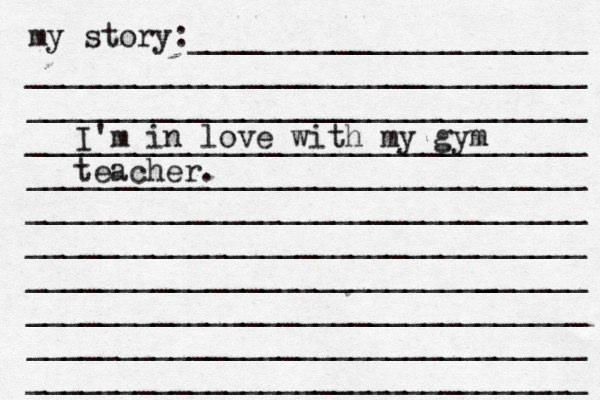 my story:
I'm in love with my gym
teacher.